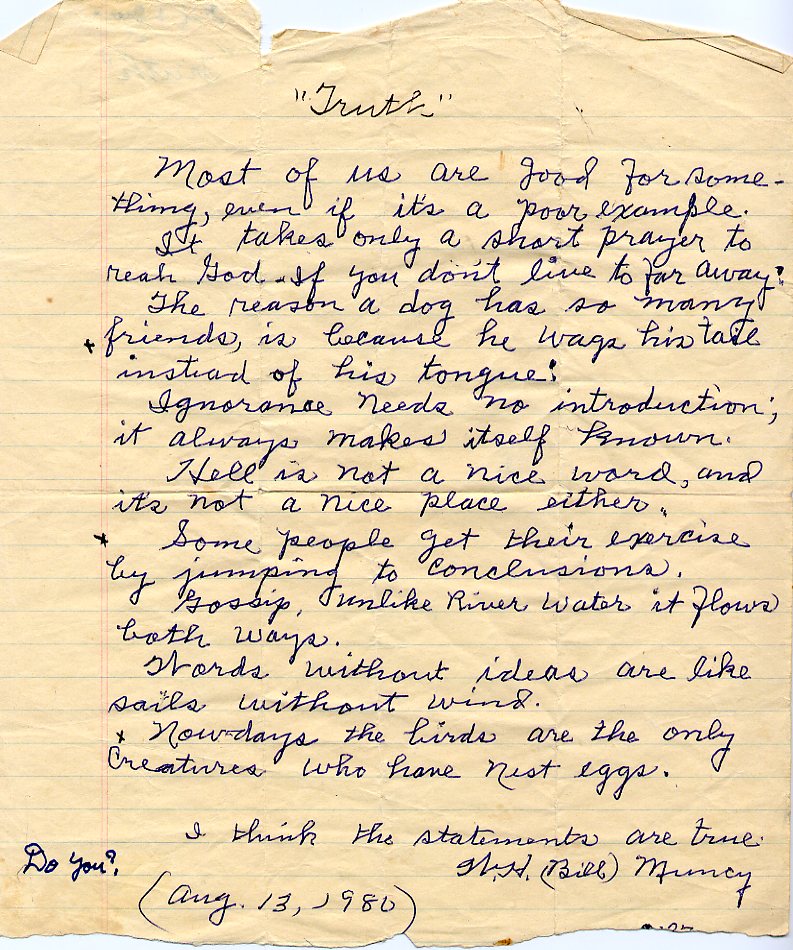 "Truth"
Most of us are good for some-
thing, even if it's a poor example.
It takes only a short prayer to
reah God. If you don't live to far away!
The reason a dog has so many
friends, is because he wags his tail
instead of his tongue!
Ignorance needs no introduction;
it always makes itself known.
Hell is not a nice word, and
it's not a nice place either.
x Some people get their exercise
by jumping to conclusions.
Gossip, unlike River Water it flows
both ways.
Words without ideas are like
sails without wind.
x Now-days the birds are the only
Creatures who have nest eggs.
I think the statements are true.
Do You?
W.H. (Bill) Muncy
(Aug. 13, 1980)